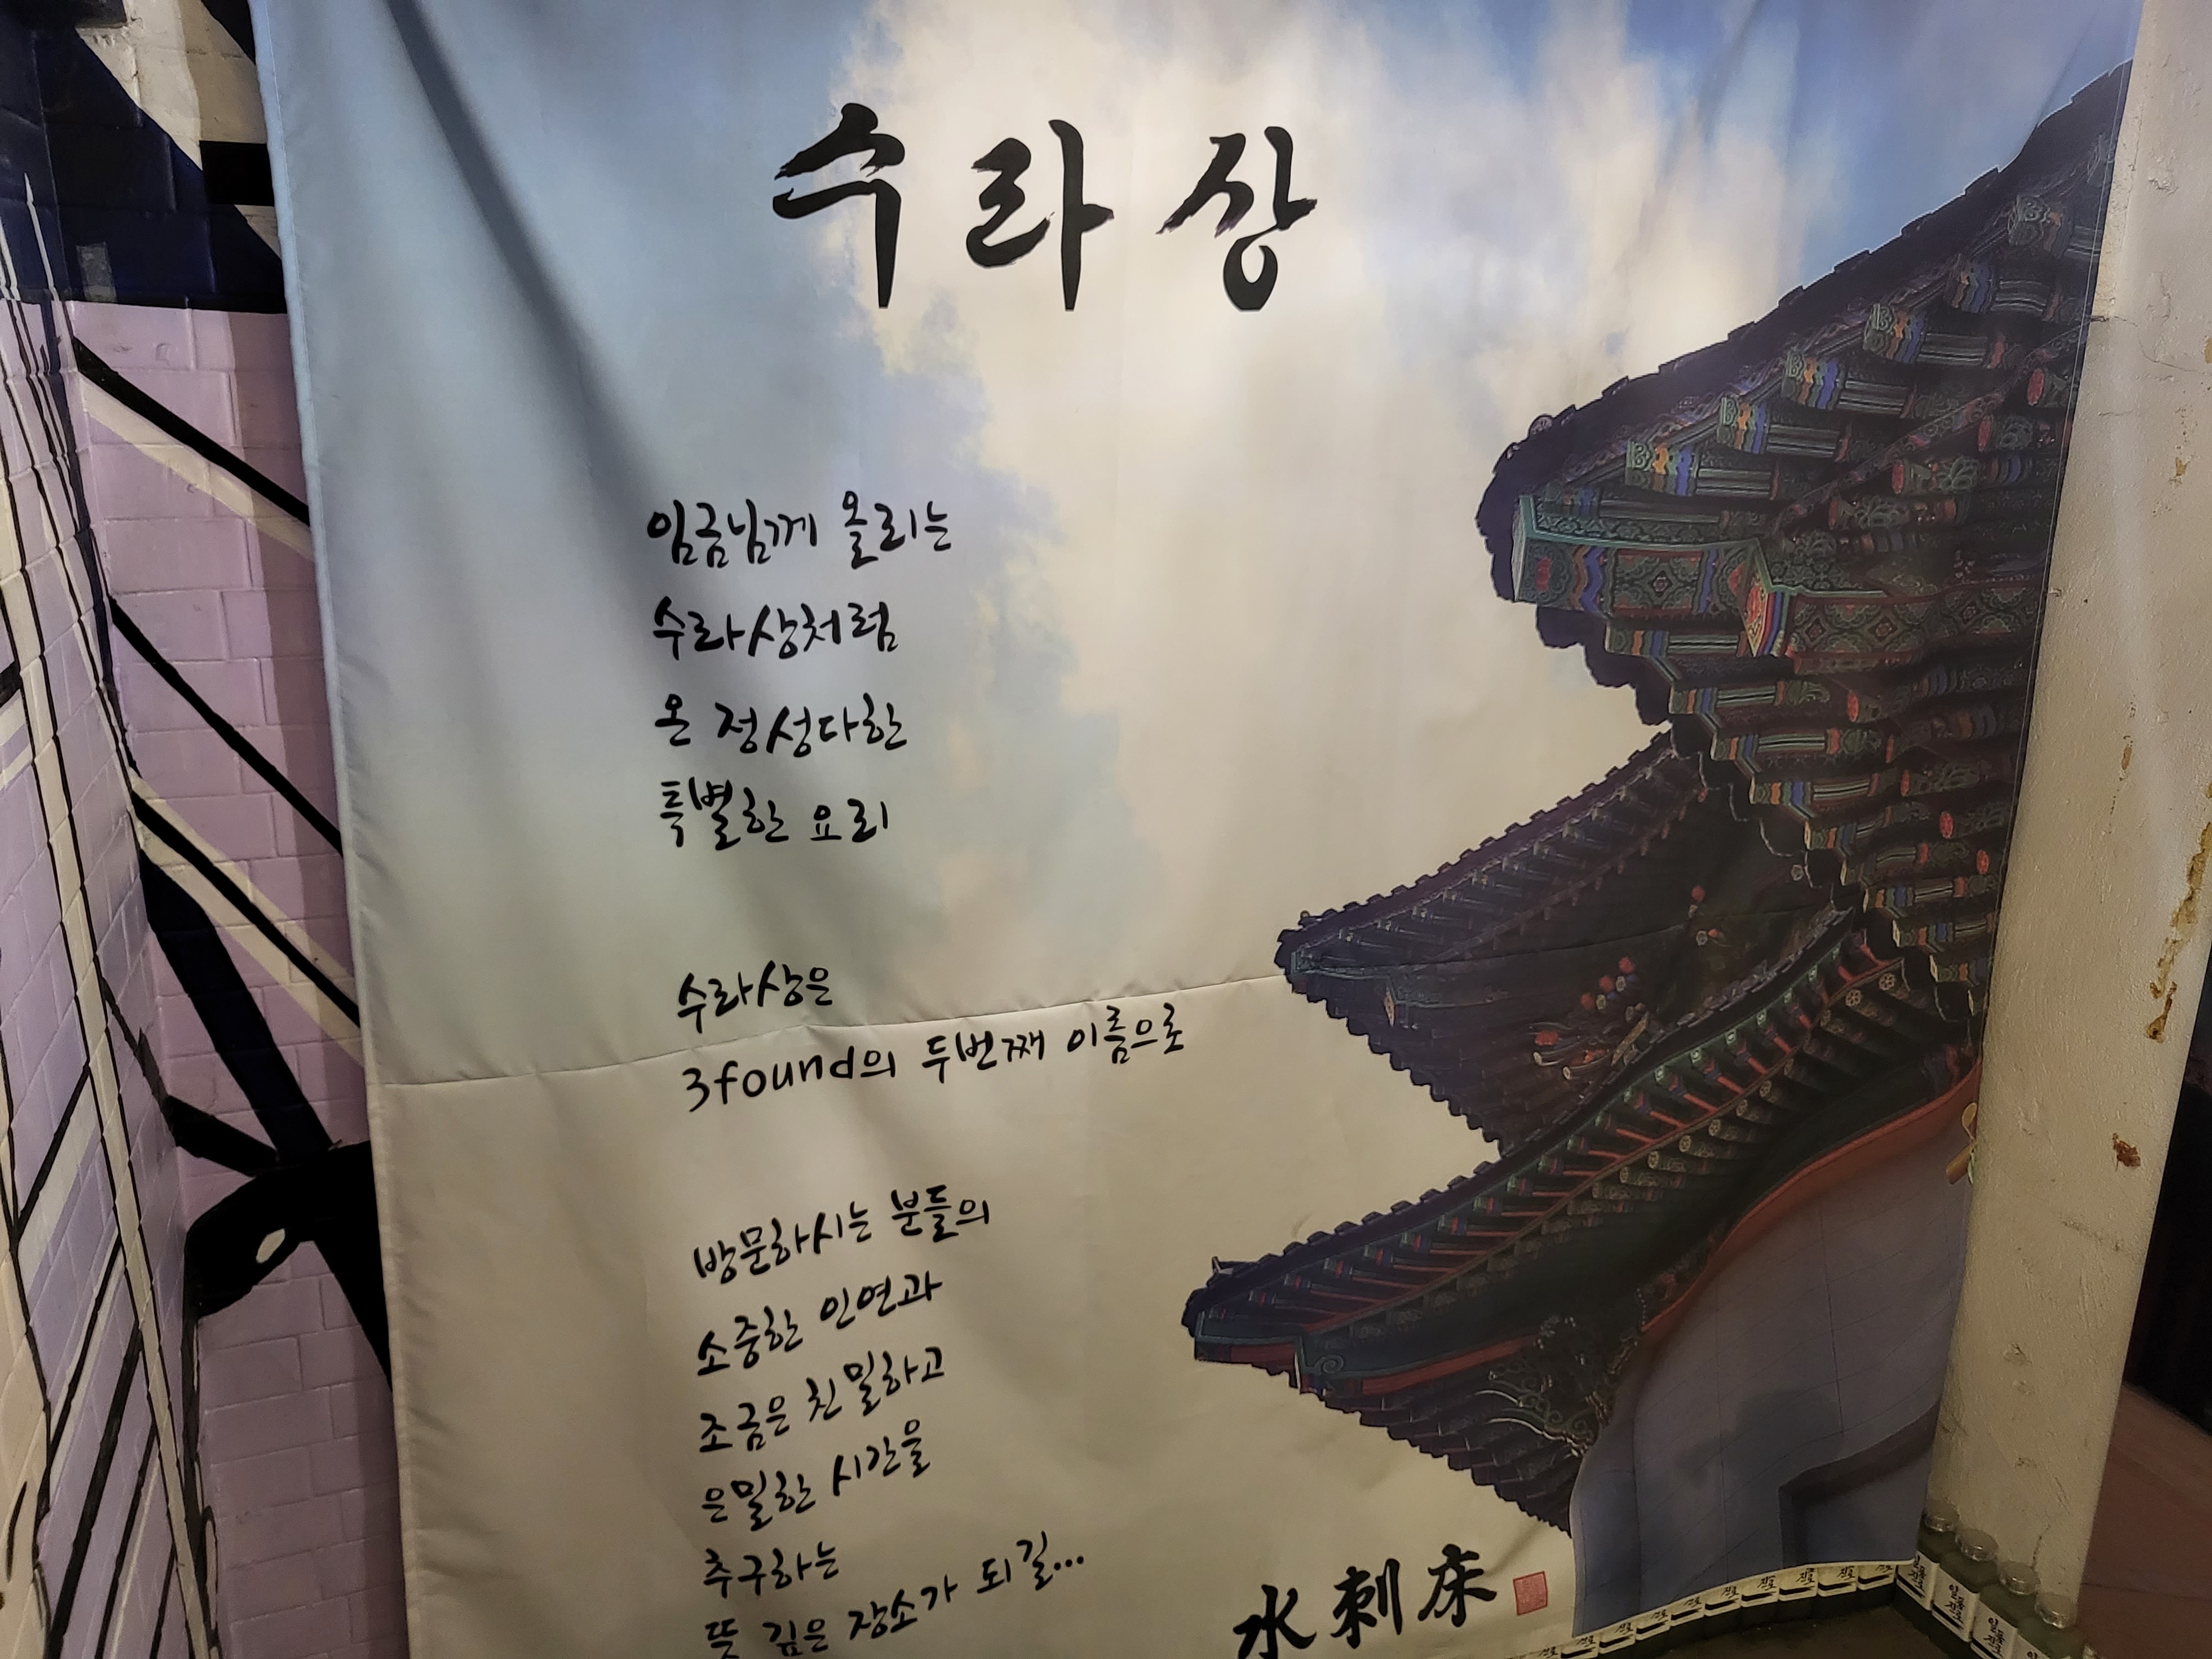 수라상
임금님께 올리는
수라상처럼
온 정성다한
특별한 요리
수라상은
3found의 두번째 이름으로
방문하시는 분들의
소중한 인연과
조금은 친밀하고
은밀한 시간을
추구하는
뜻 깊은 장소가 되길...
水剌床
일품
진로